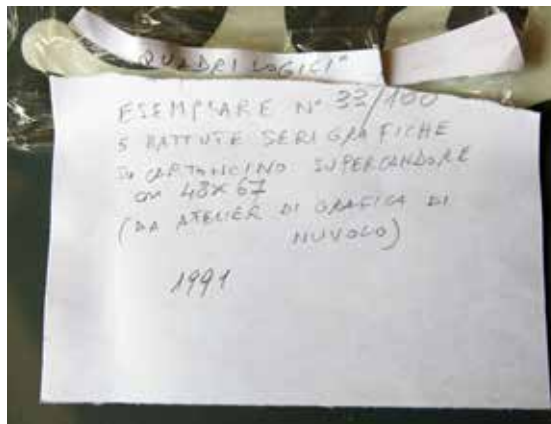 "QUADRI LOGICI"
ESEMPLARE N° 33/100
5 BATTUTE SERIGRAFICHE
SU CARTONCINO SUPERCANDORE
cm 48x67
(DA ATELIER DI GRAFICA DI
NUVOLO)
1991